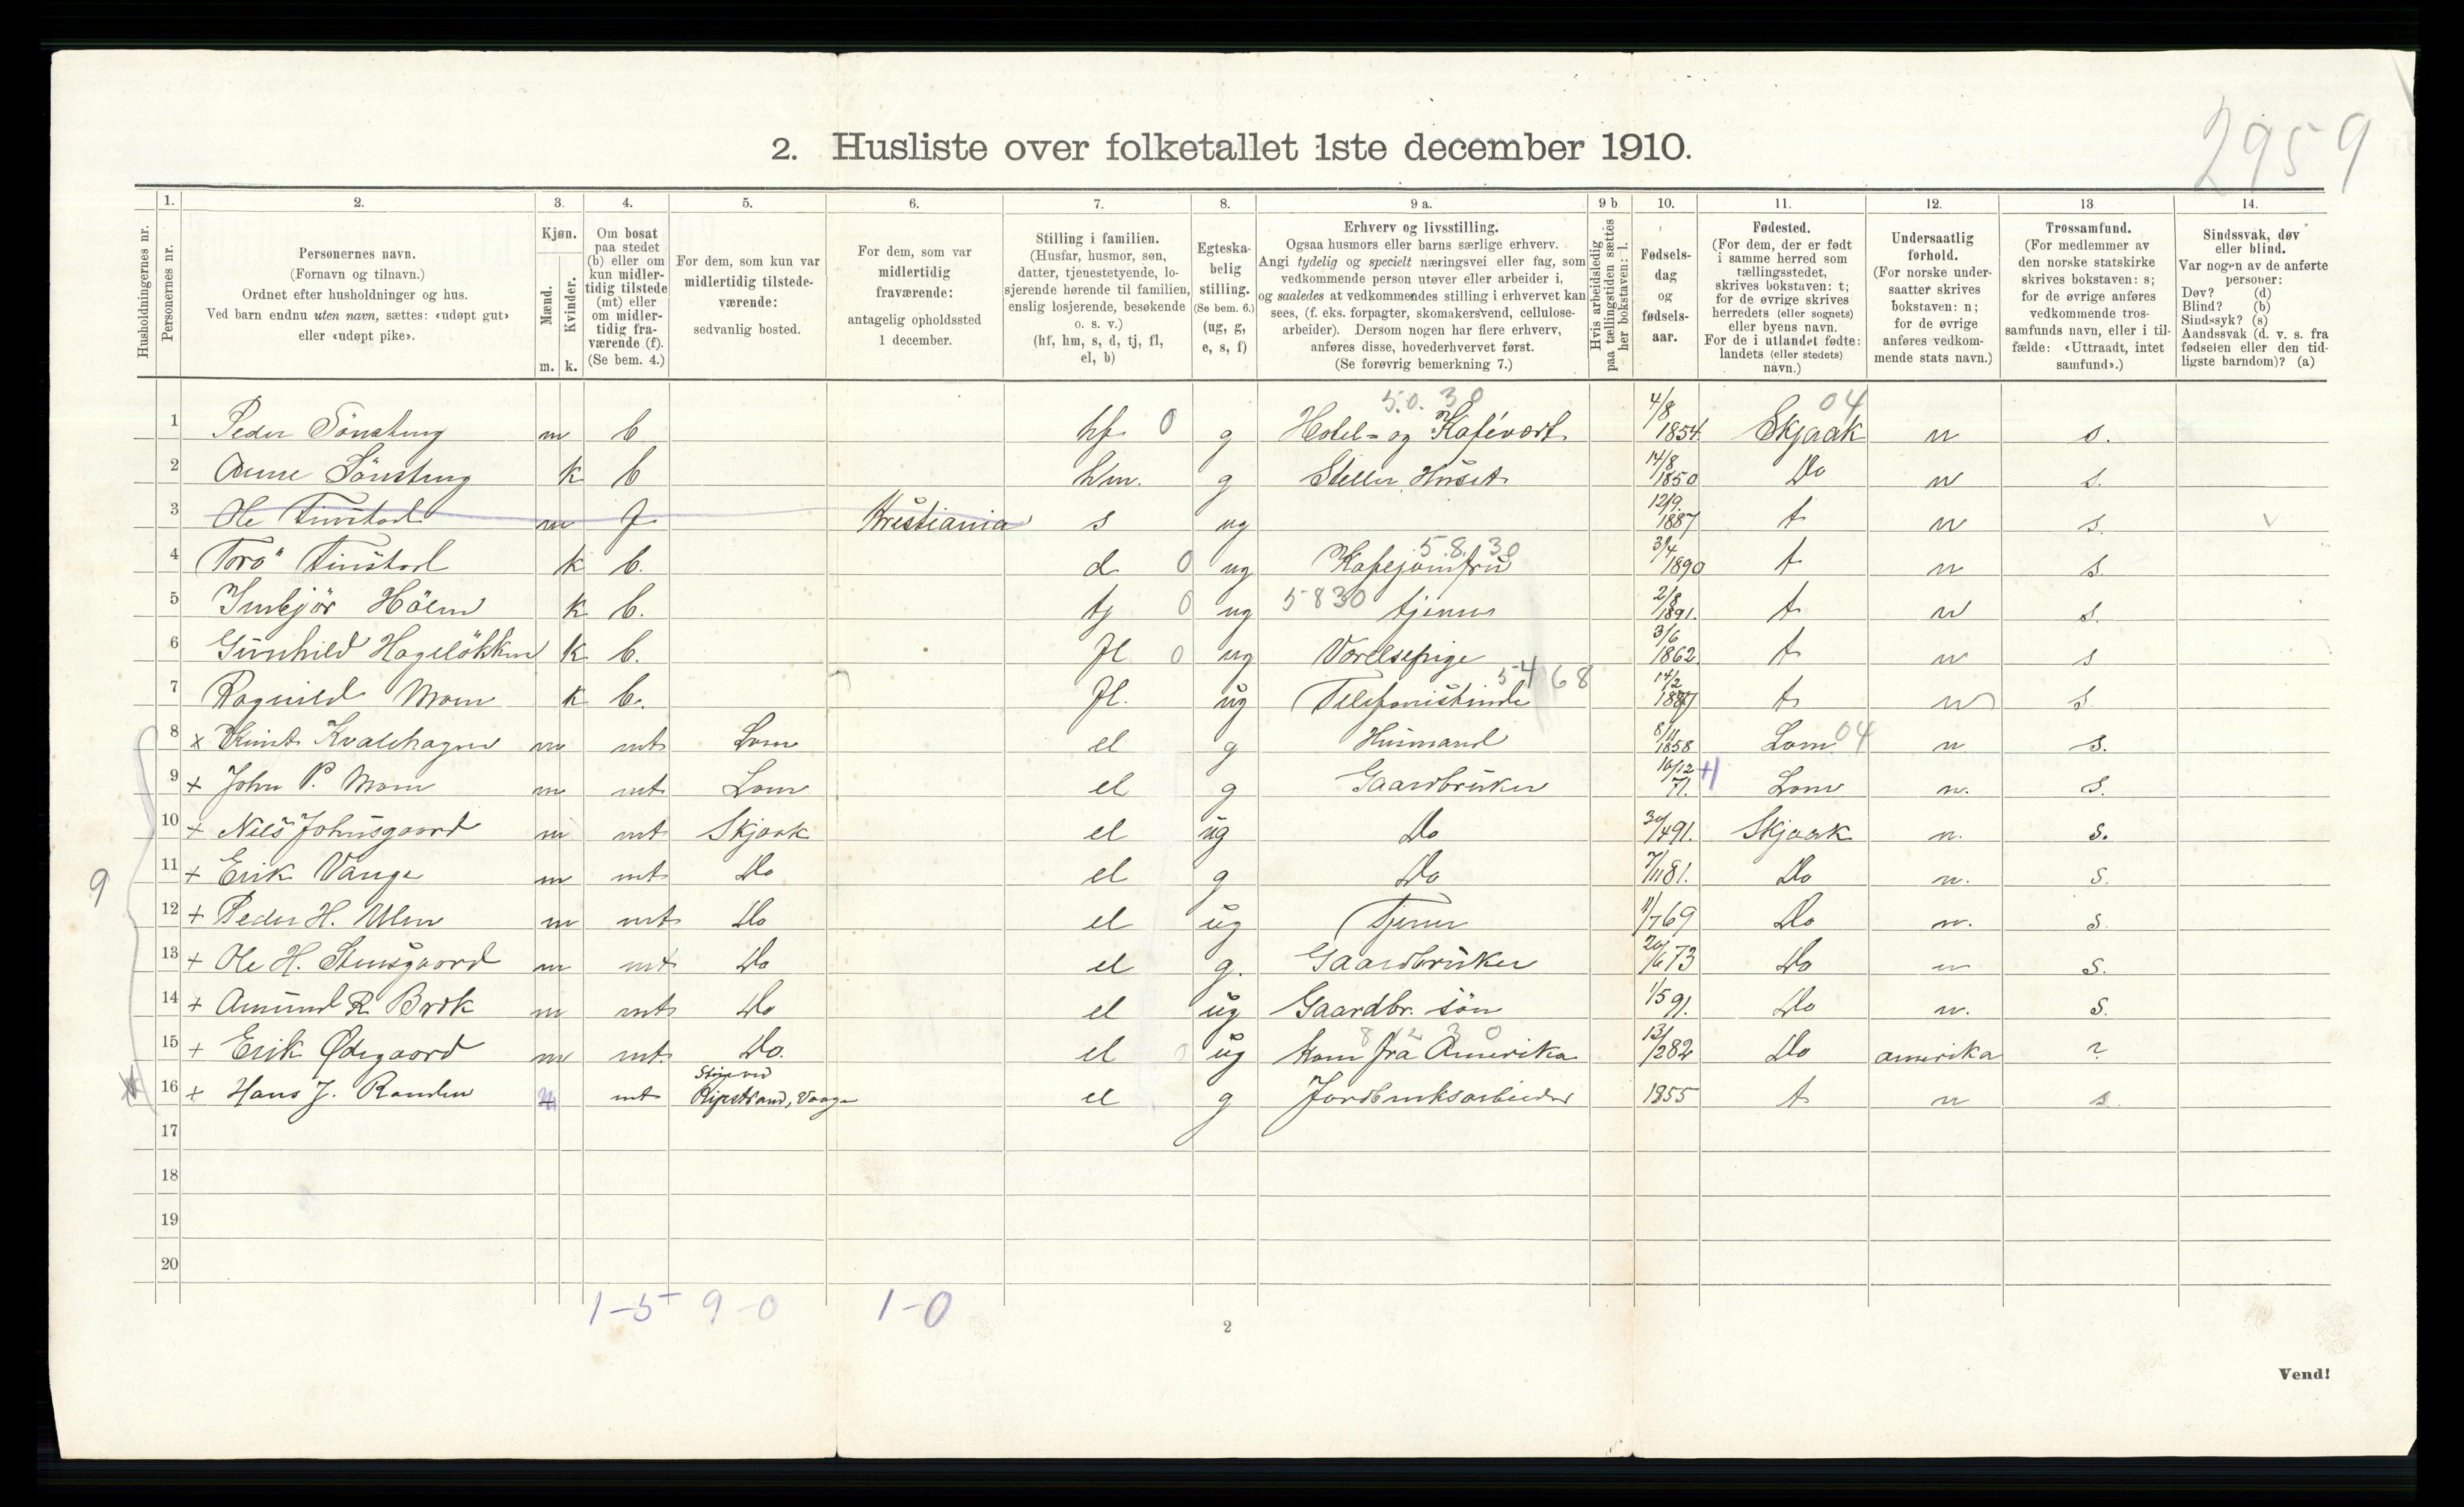 2959
2. Husliste over folketallet 1ste december 1910.
Husholdningernes nr.
1. Personernes nr.
2. Personernes navn. (Fornavn og tilnavn.) Ordnet efter husholdninger og hus. Ved barn endnu uten navn, sættes: «udøpt gut» eller «udøpt pike».
3. Kjøn. Mænd. m. Kvinder. k.
4. Om bosat paa stedet (b) eller om kun midlertidig tilstede (mt) eller om midlertidig fraværende (f). (Se bem. 4.)
5. For dem, som kun var midlertidig tilstedeværende: sedvanlig bosted.
6. For dem, som var midlertidig fraværende: antagelig opholdssted 1 december.
7. Stilling i familien. (Husfar, husmor, søn, datter, tjenestetyende, losjerende hørende til familien, enslig losjerende, besøkende o. s. v.) (hf, hm, s, d, tj, fl, el, b)
8. Egteskabelig stilling. (Se bem. 6.) (ug, g, e, s, f)
9 a. Erhverv og livsstilling. Ogsaa husmors eller barns særlige erhverv. Angi tydelig og specielt næringsvei eller fag, som vedkommende person utøver eller arbeider i, og saaledes at vedkommendes stilling i erhvervet kan sees, (f. eks. forpagter, skomakersvend, cellulosearbeider). Dersom nogen har flere erhverv, anføres disse, hovederhvervet først. (Se forøvrig bemerkning 7.)
9 b. Hvis arbeidsledig paa tællingstiden sættes her bokstaven: l.
10. Fødselsdag og fødselsaar.
11. Fødested. (For dem, der er født i samme herred som tællingsstedet, skrives bokstaven: t; for de øvrige skrives herredets (eller sognets) eller byens navn. For de i utlandet fødte: landets (eller stedets) navn.)
12. Undersaatlig forhold. (For norske undersaatter skrives bokstaven: n; for de øvrige anføres vedkommende stats navn.)
13 Trossamfund. (For medlemmer av den norske statskirke skrives bokstaven: s; for de øvrige anføres vedkommende trossamfunds navn, eller i tilfælde: «Uttraadt, intet samfund».)
14. Sindssvak, døv eller blind. Var nogen av de anførte personer: Døv? (d) Blind? (b) Sindssyk? (s) Aandssvak (d. v. s. fra fødselen eller den tidligste barndom)? (a)
5.0.30 04
1 Peder Sönsteng m b hf 0 g Hotel- og Kafévært 4/8 1854 Skjaak n s.
2 Anne Sönsteng k b hm. g Steller Huset 14/8 1850 Do n s.
3 Ole Finstad m f Kristiania s ug 12/9 1887 t n s.
4 Tora Finstad k b. d 0 ug 5.8.30 Kafejomfru 30/4 1890 t n s.
5 Imbjör Hölm k b. tj 0 ug 5830 tjener 2/8 1891. t n s.
6 Gunhild Hagelökken k b. fl 0 ug Værelsepige 3/6 1862 t n s
7 Ragnild Moen k b. fl. ug 5468 Telefonistinde 14/2 1887 t n s
8 x Knut Kvalehagen m mt Lom el g Husmand 8/11 1858 Lom 04 n s.
9 + John P. Moen m mt Lom el g Gaardbruker 10/12 71. Lom n. s.
10 + Nils Johnsgaard m mt Skjaak el ug Do 30/4 91. Skjaak n. s.
11 + Erik Vange m mt Do el g Do 7/11 81. Do n. s.
9
12 + Peder H. Ulen m mt Do el ug Tjener 11/7 69 Do n. s
13 + Ole H. Stensgaard m mt Do el g. Gaardbruker 20/6 73 Do n s.
14 + Amund R. Brek m mt Do el ug Gaardbr. sön 1/5 91. Do n. s.
15 + Erik Ödegaard m mt. Do. el ug 8 12 30 kom fra Amerika 13/2 82 Do amerika ?
16 + Hans J. Randen m mt el g Jordbruksarbeider 1855 t n s.
17
18
19
20
1-5 9-0 1-0
2
Vend!